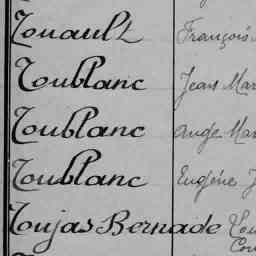 Touault François
Toublanc Jean Mar
Toublanc Ange Mar
Toublanc Eugène J
Toujas Bernade